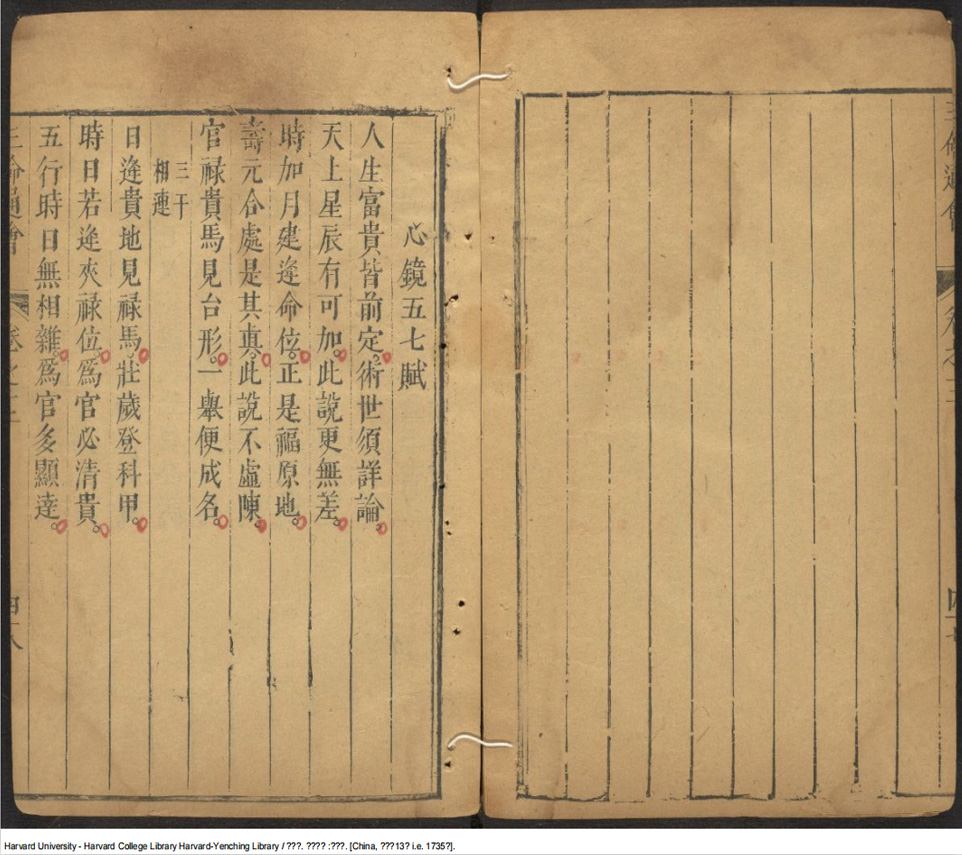 心鏡五七賦
人生富貴皆前定。術世須詳論。
天上星辰有可加。此說更無差。
時加月建逢命位。正是福原地。
壽元合處是其真。此說不虛陳。
官祿貴馬見台形。一舉便成名。
三干
相連
日逢貴地見祿馬。壯歲登科甲。
時日若逢夾祿位。爲官必清貴。
五行時日無相雜。爲官多顯達。
Harvard University - Harvard College Library Harvard-Yenching Library / ???. ???? :???. [China, ???13? i.e. 1735?].